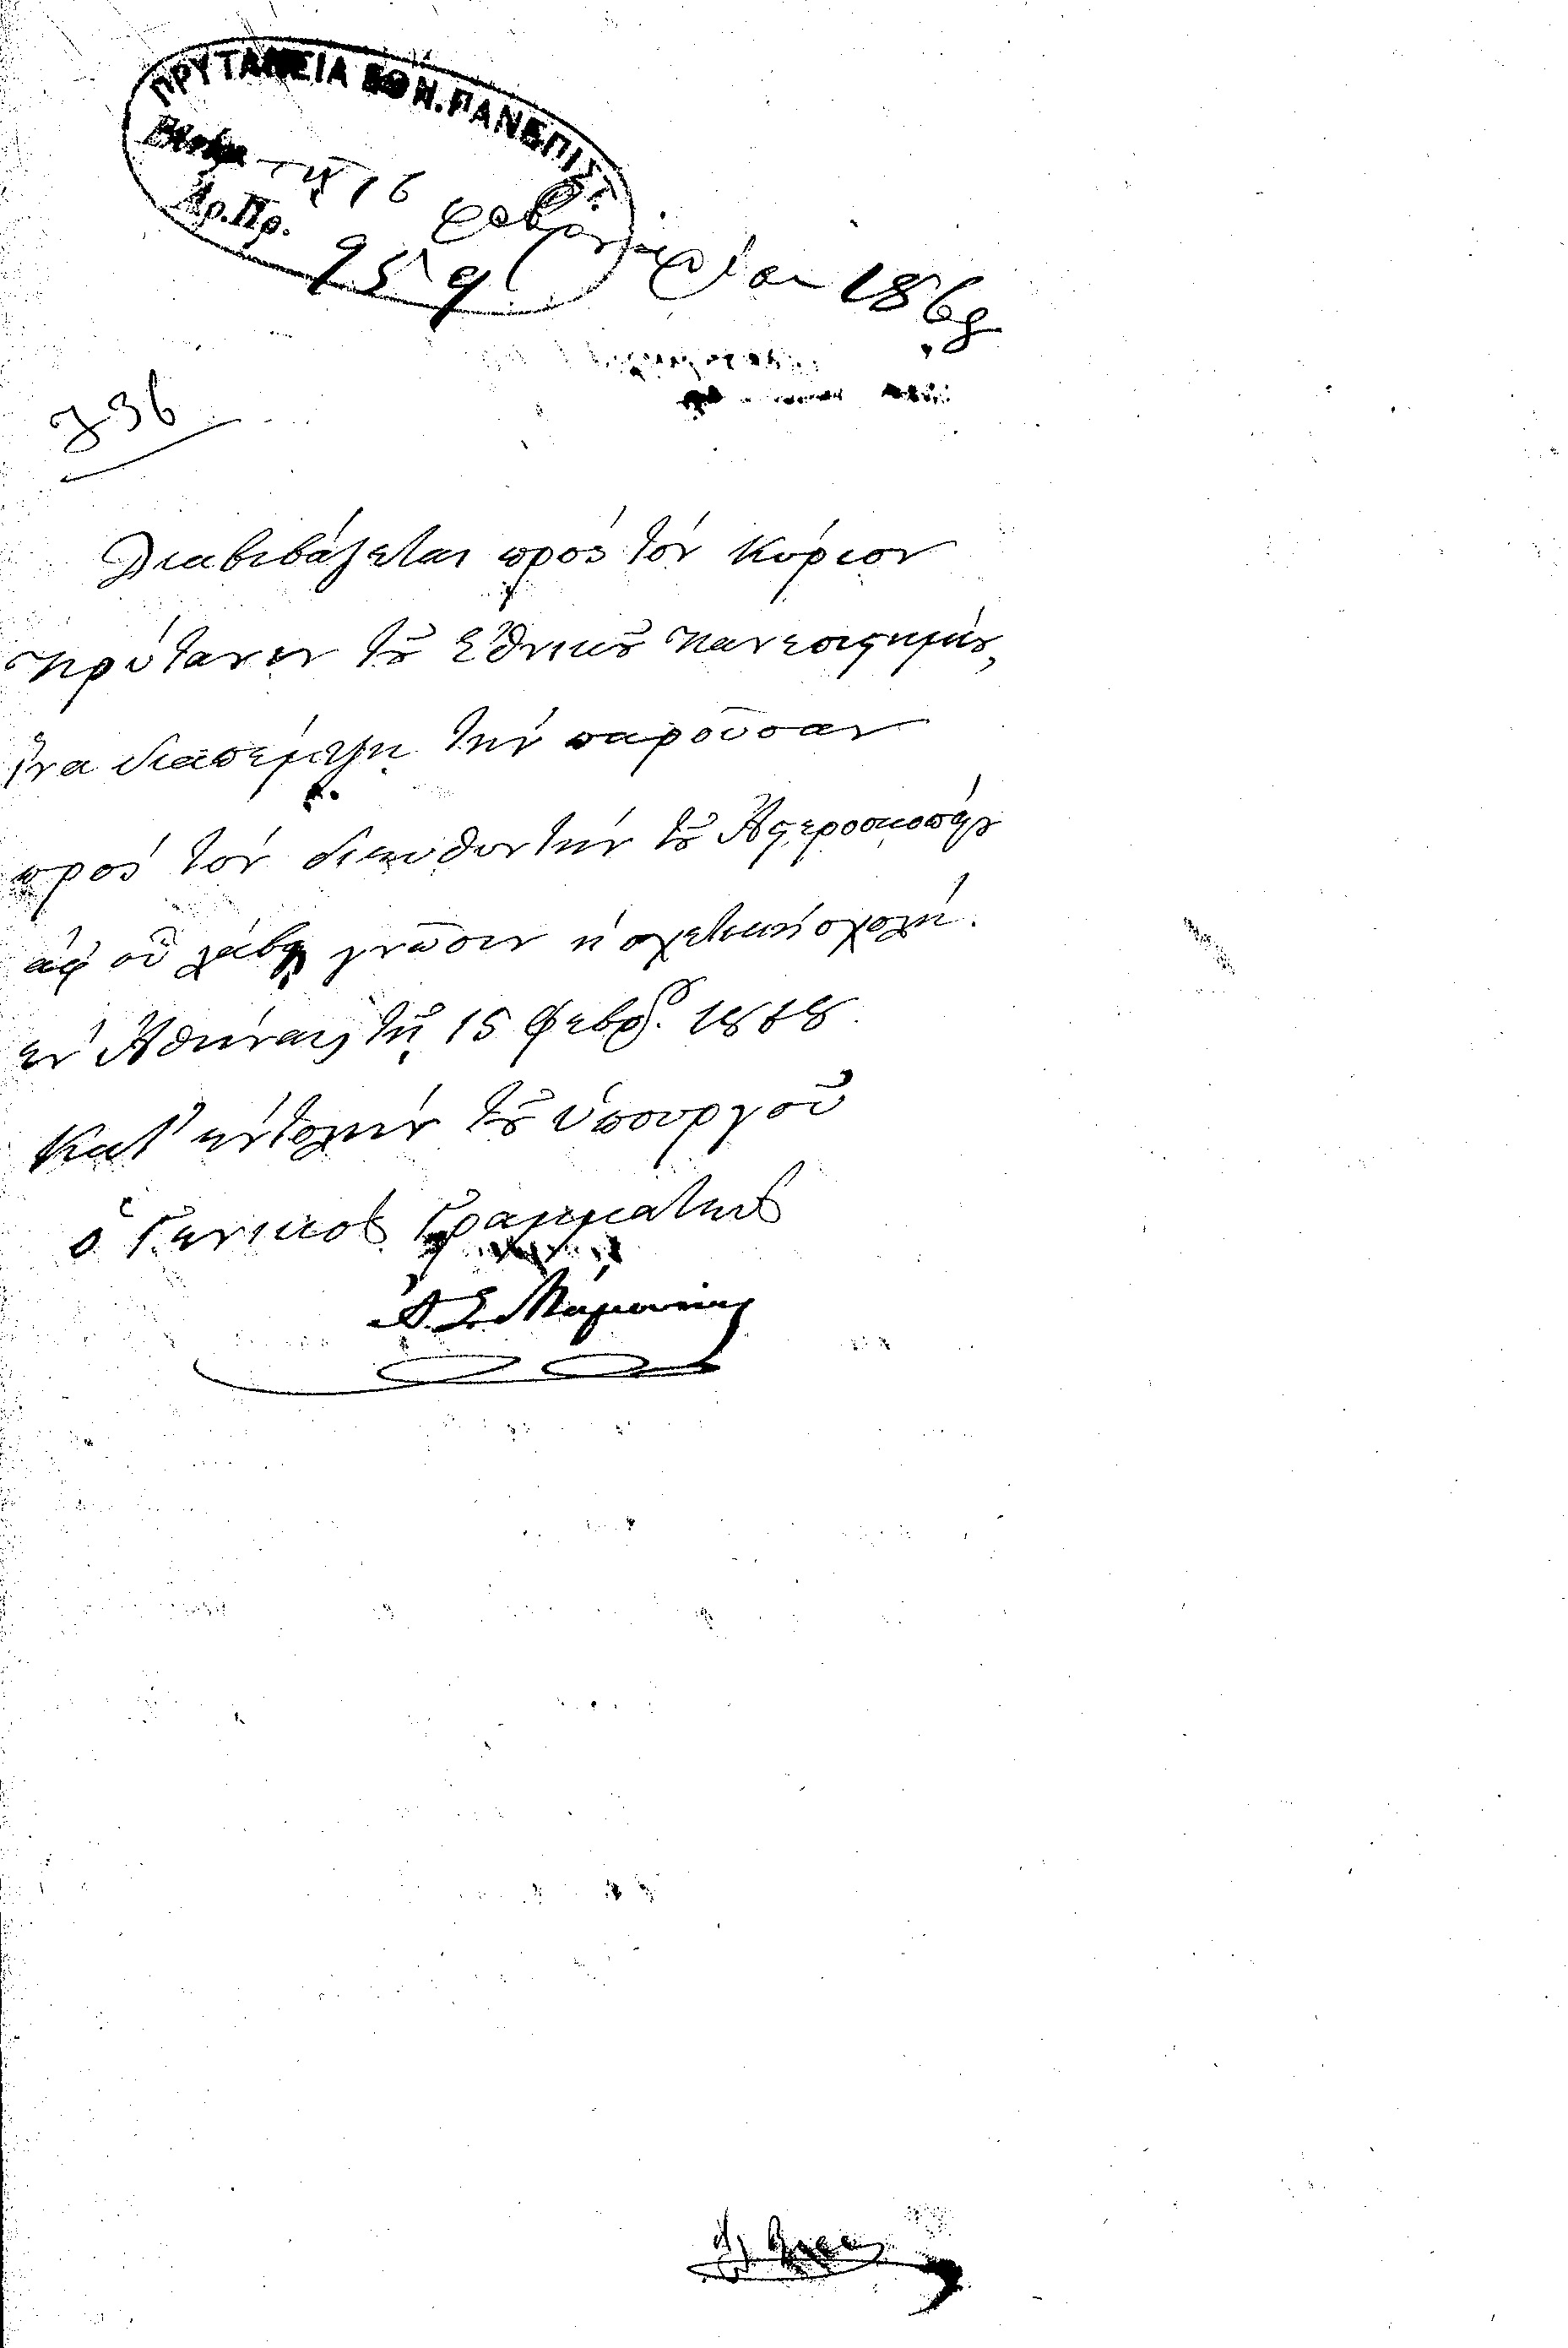 ΠΡΥΤΑΝΕΙΑ ΕΘΝ. ΠΑΝΕΠΙΣΤ.
τῇ 16 Φεβρουαρίου 186
Ἀρ. Πρ. 959
736
Διαβιβάζεται πρὸς τὸν Κύριον
Πρύτανιν τοῦ Ἐθνικοῦ Πανεπιστημίου,
ἵνα διαπέμψῃ τὴν παροῦσαν
πρὸς τὸν διευθυντὴν τοῦ Ἀστεροσκοπείου
ἀφ' οὗ λάβῃ γνῶσιν ἡ σχετικὴ σχολή.
ἐν Ἀθήναις τῇ 15 Φεβρ. 1868
Κατ' ἐντολὴν τοῦ ὑπουργοῦ
ὁ Γενικὸς Γραμματεὺς